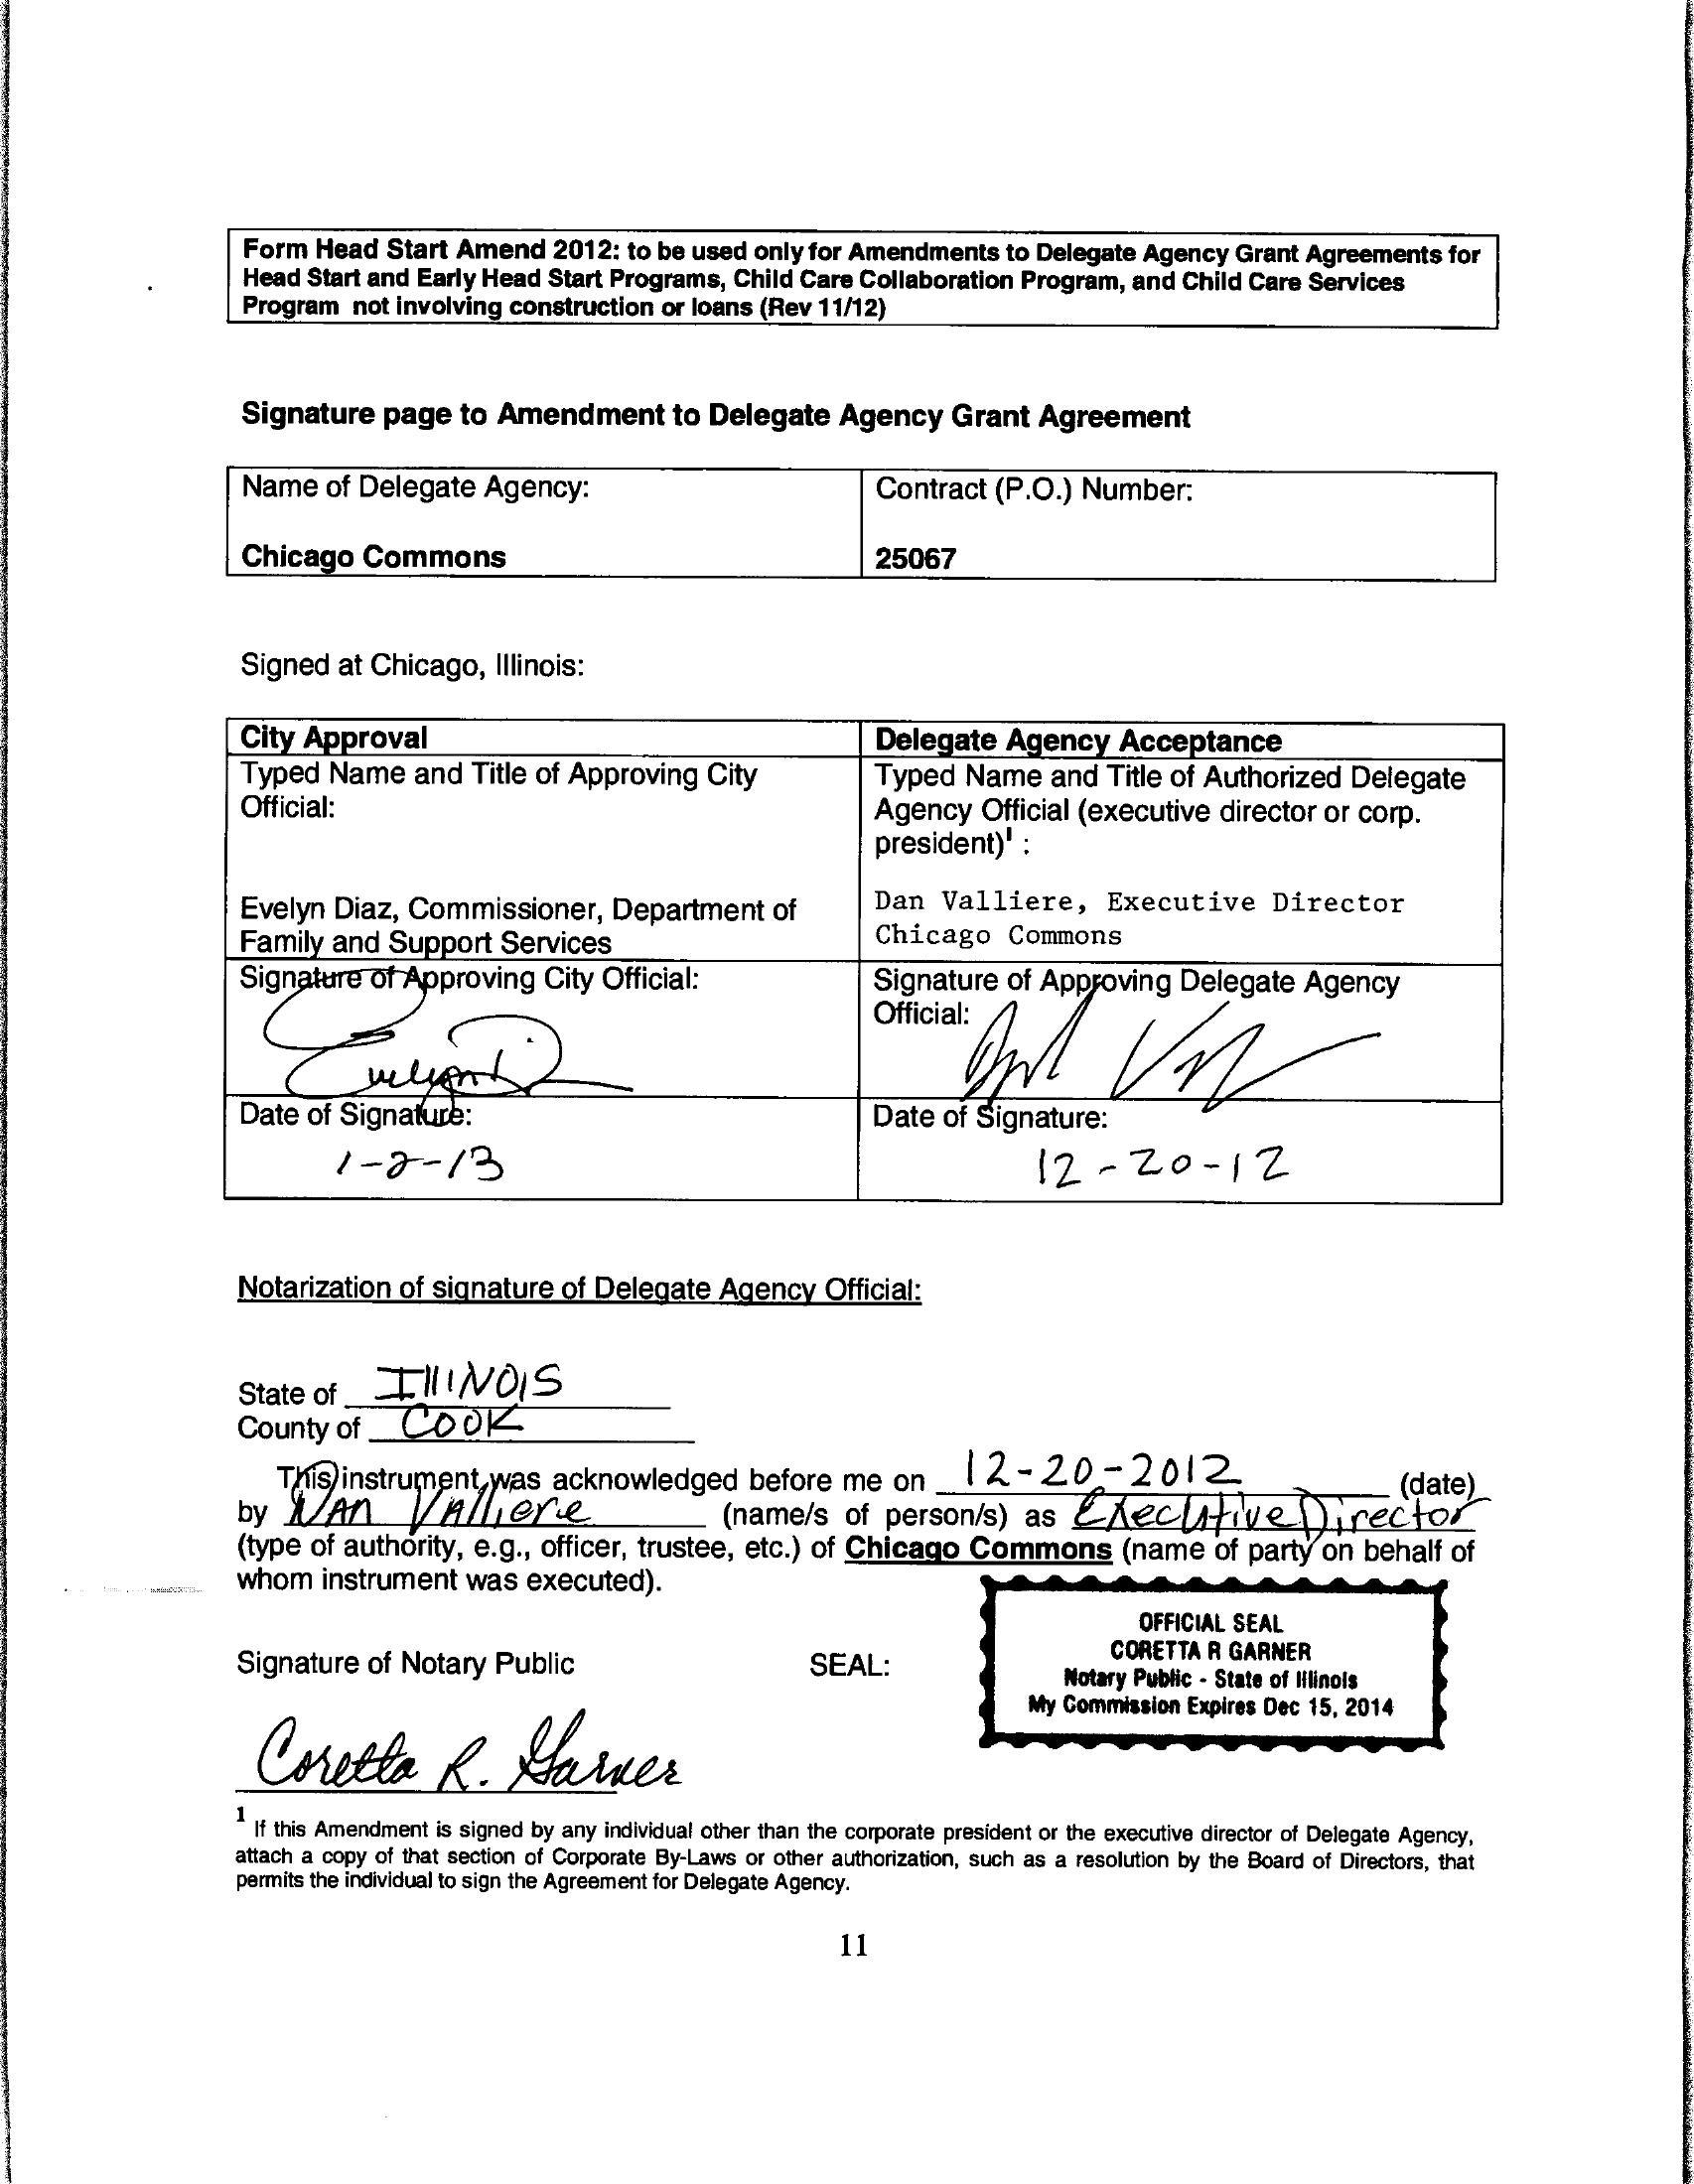 Form Head Start Amend 2012: to be used only for Amendments to Delegate Agency Grant Agreements for
Head Start and Early Head Start Programs, Child Care Collaboration Program, and Child Care Services
Program not involving construction or loans (Rev 11/12)
Signature page to Amendment to Delegate Agency Grant Agreement
Name of Delegate Agency:
Chicago Commons
Contract (P.O.) Number:
25067
Signed at Chicago, Illinois:
City Approval
Typed Name and Title of Approving City
Official:
Evelyn Diaz, Commissioner, Department of
Family and Support Services
Signature of Approving City Official:
Evelyn D
Date of Signature:
1-2-13
Delegate Agency Acceptance
Typed Name and Title of Authorized Delegate
Agency Official (executive director or corp.
president)1 :
Dan Valliere, Executive Director
Chicago Commons
Signature of Approving Delegate Agency
Official:
Date of Signature:
12-20-12
Notarization of signature of Delegate Agency Official:
State of IllINOIS
County of COOK
This instrument was acknowledged before me on 12-20-2012 (date)
by DAN VAlliere (name/s of person/s) as Executive Director
(type of authority, e.g., officer, trustee, etc.) of Chicago Commons (name of party on behalf of
whom instrument was executed).
Signature of Notary Public
SEAL:
OFFICIAL SEAL
CORETTA R GARNER
Notary Public - State of Illinois
My Commission Expires Dec 15, 2014
Coretta R. Garner
1 If this Amendment is signed by any individual other than the corporate president or the executive director of Delegate Agency,
attach a copy of that section of Corporate By-Laws or other authorization, such as a resolution by the Board of Directors, that
permits the individual to sign the Agreement for Delegate Agency.
11